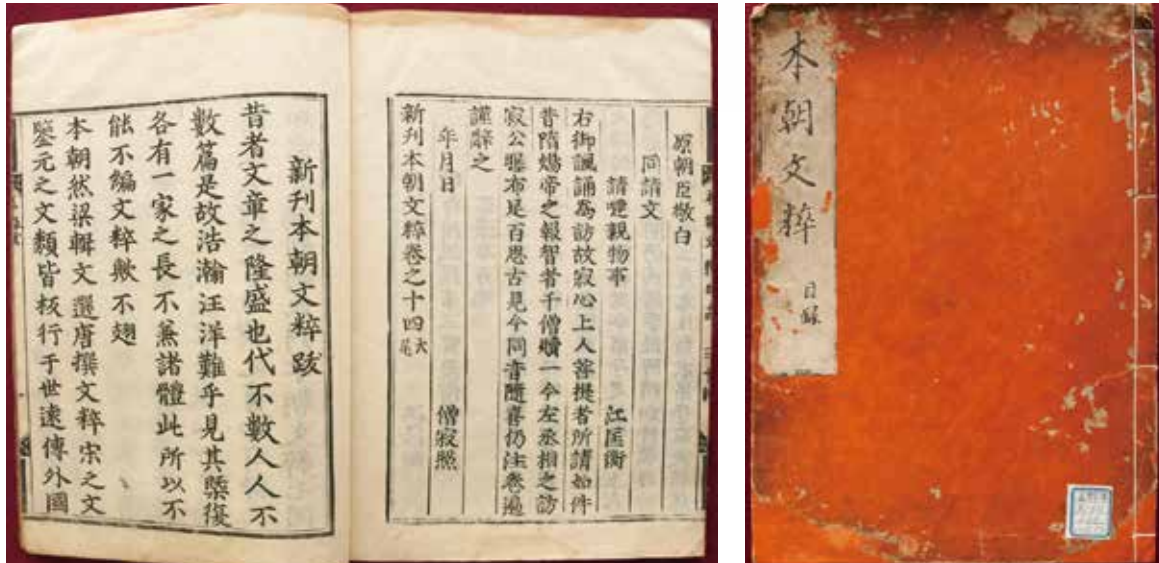 原朝臣敬白
同請文
請物事 江匡衡
右御諷誦為訪故寂心上人菩提者所請如件
昔隋煬帝之報智者千僧贖一今左丞相之訪
寂公曝布足百恩古見今同音隨喜仍注卷遍
謹辭之
年月日 僧寂照
新刊本朝文粹卷之十四大尾
新刊本朝文粹跋
昔者文章之隆盛也代不數人人不
數篇是故浩瀚汪洋難乎見其槩復
各有一家之長不兼諸體此所以不
能不編文粹歟不翅
本朝然梁輯文選唐撰文粹宋之文
鑒元之文類皆板行于世遠傳外國
本朝文粹 目錄